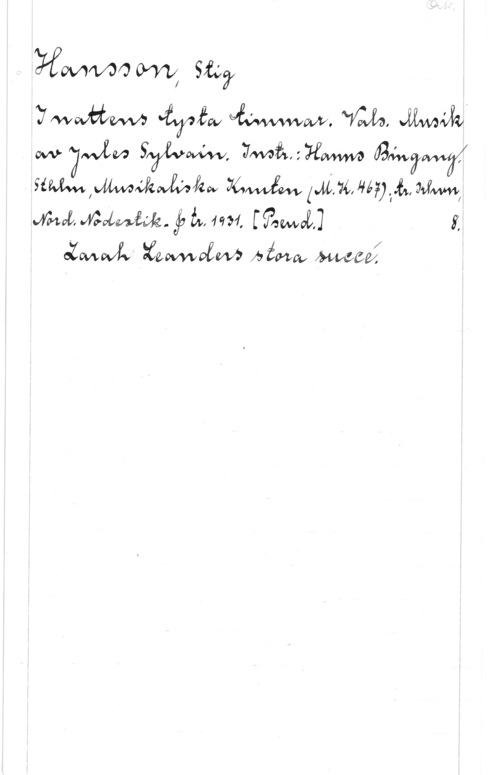 Ork.
Hansson, Stig
I nattens tysta timmar. Vals. Musik
av Jules Sylvain. Instr.: Hanns Bingang,
Sthlm, Musikaliska Knuten (M.K. 467); tr. Sthlm,
Nord. Nodestik. tr. 1931. [Pseud.] 8.
Zarah Leanders stora succé.